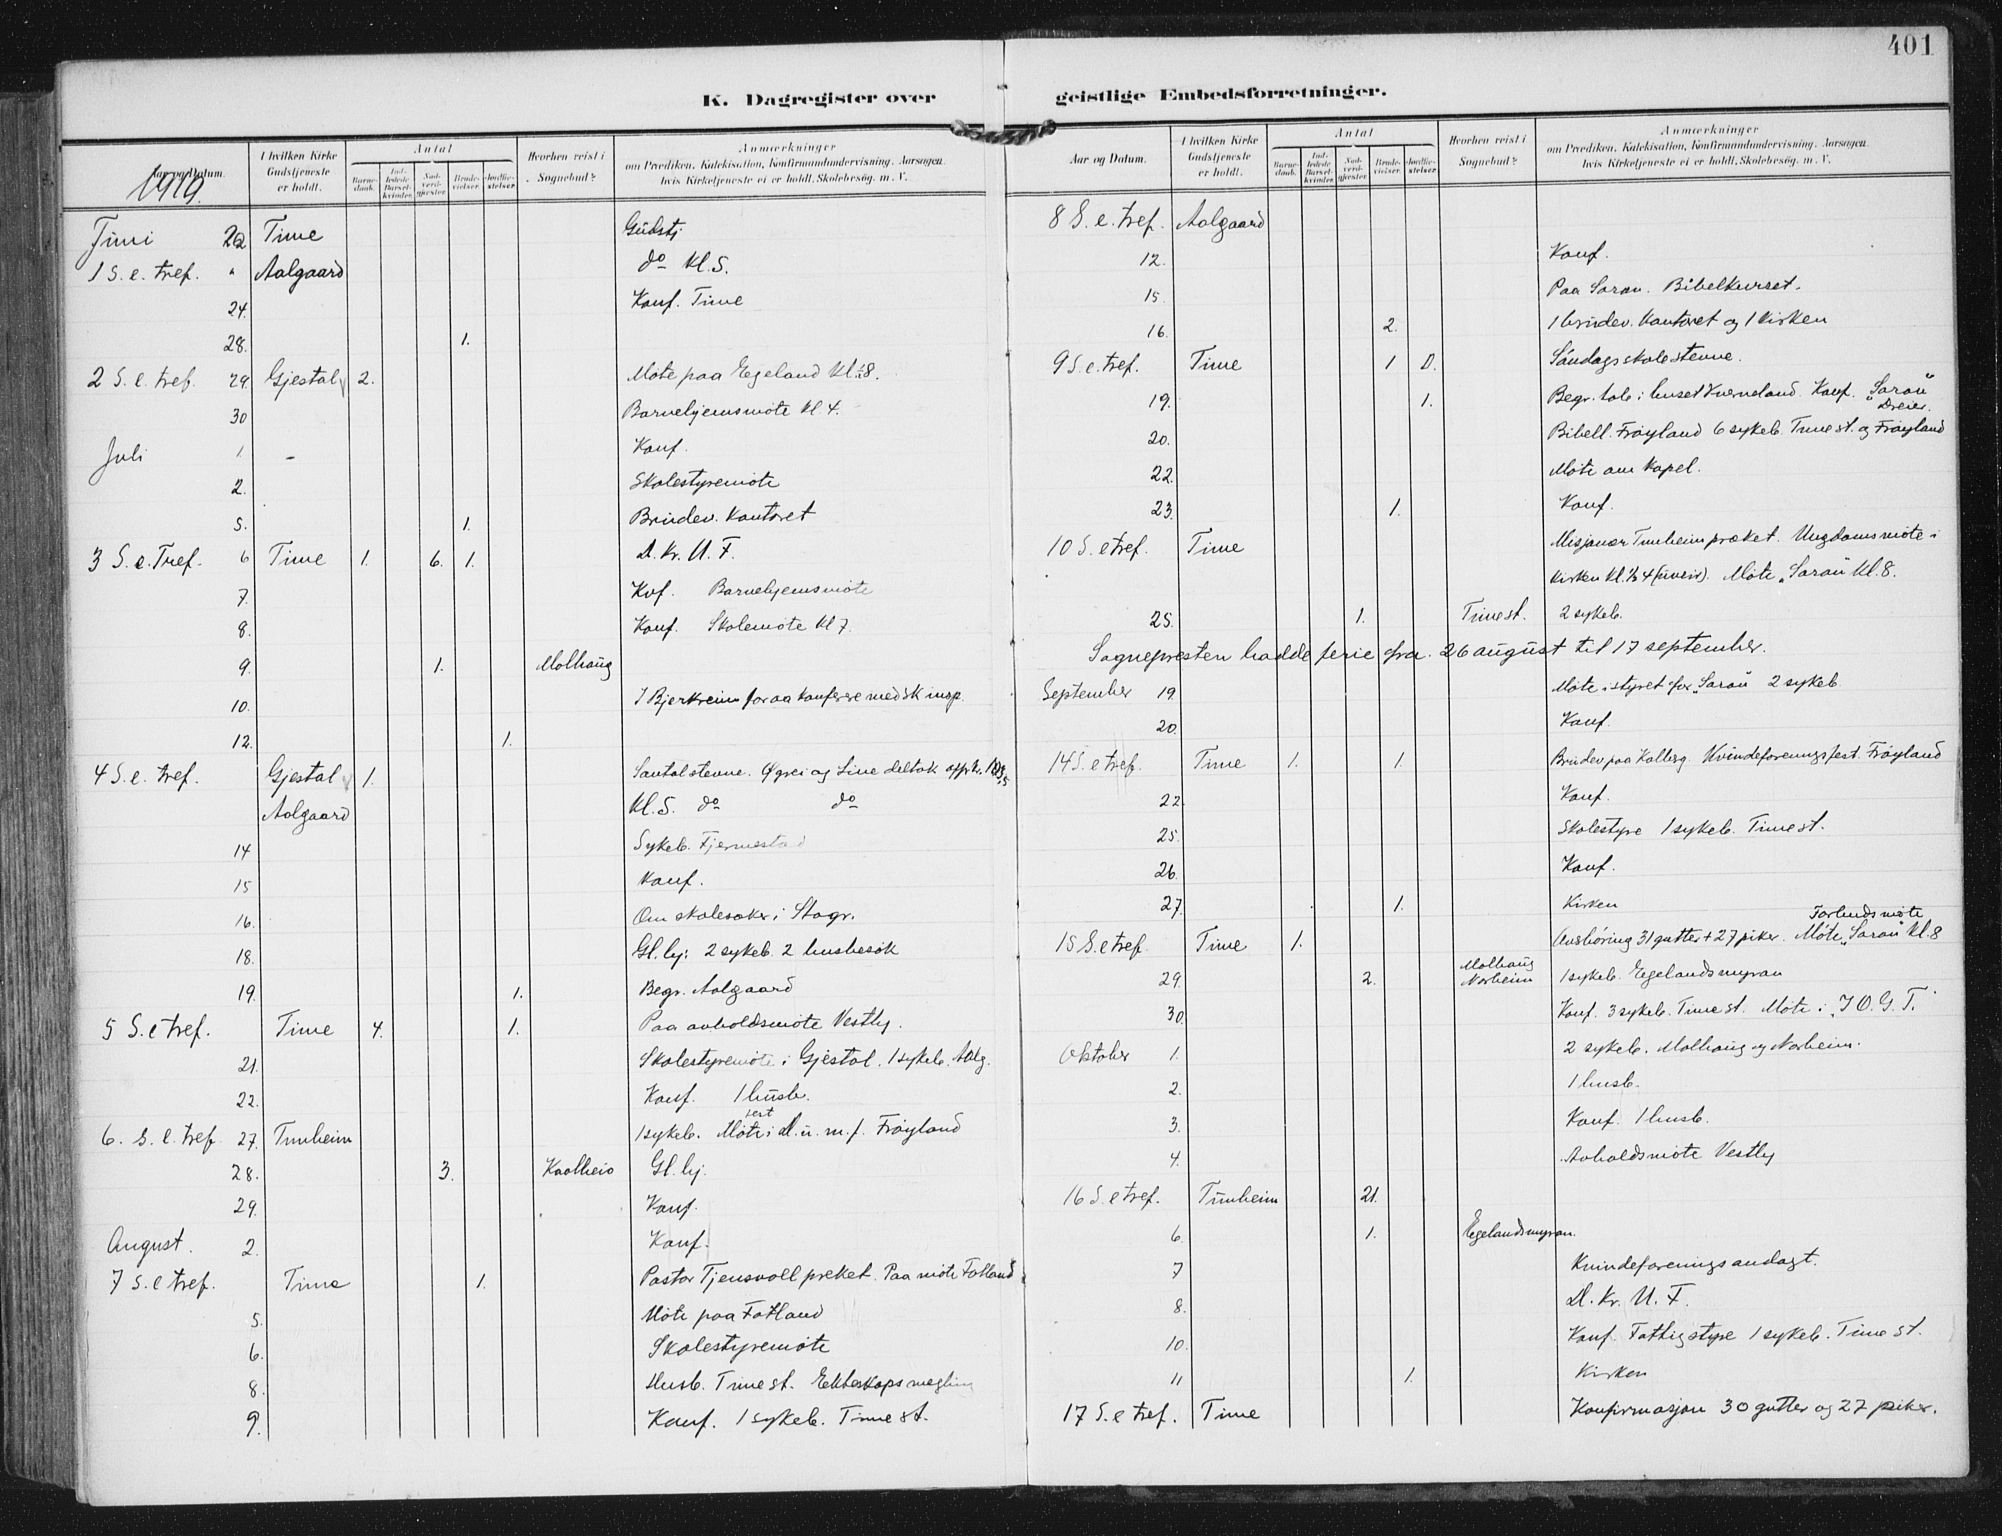 401
K. Dagregister over geistlige Embedsforretninger.
Aar og Datum.
I hvilken Kirke Gudstjeneste er holdt.
Antal
Barne-daab.
Ind-ledede Barsel-kvinder.
Nad-verd-gjester
Brude-vielser.
Jordfæ-stelser
Hvorhen reist i Sognebud?
Anmærkninger
om Prædiken, Katekisation, Konfirmandundervisning, Aarsagen
hvis Kirketjeneste ei er holdt, Skolebesøg, m. V.
1919.
Juni 22 Time Gudstj
1 S. e. tref. " Aalgaard do Kl. 5.
24. Konf. Time
28. 1.
2 S. e. tref. 29. Gjestal 2. Møte paa Egeland Kl. 8.
30 Barnehjemsmøte Kl 4.
Juli 1 - Konf.
2. Skolestyremøte
5. 1. Brudev. Kontoret
3 S. e. Tref. 6 Time 1. 6. 1. D. Kr. U. F.
7. Kof. Barnehjemsmøte
8. Konf. Skolemøte Kl 7.
9. 1. Molhaug
10. I Bjerkreim for aa konferere med sk insp.
12. 1.
4 S. e. tref. Gjestal 1. Santalstevne. Øgrei og Line deltok
Aalgaard Kl. 5. do do
14 Sykeb. Fjermestad
15 Konf.
16. Om skolesaker i Stagr.
18. Gl. hj. 2 sykeb. 2 husbesøk
19. 1. Begr. Aalgaard
5 S. e tref. Time 4. 1. Paa avholdsmøte Vestly.
21. Skolestyremøte i Gjestal. 1 sykeb. Aalg.
22. Konf. 1 husb.
6. S. e. tref. 27. Tunheim 1 sykeb. Møte i D. u. m. f. Frøyland
28. 3. Kaalheio Gl. hj.
29. Konf.
August. 2. Konf.
7 S. e tref. Time 1. Pastor Tjensvoll preket. Paa møte Fotland
5. Møte paa Fotland
6. Skolestyremøte
8. Husb. Time st. Ekteskapsmegling
9. Konf. 1 sykeb. Time st.
Aar og Datum.
I hvilken Kirke Gudstjeneste er holdt.
Antal
Barne-daab.
Ind-ledede Barsel-kvinder.
Nad-verd-gjester
Brude-vielser.
Jordfæ-stelser
Hvorhen reist i Sognebud?
Anmærkninger
om Prædiken, Katekisation, Konfirmandundervisning, Aarsagen
hvis Kirketjeneste ei er holdt, Skolebesøg, m. V.
8 S. e. tref. Aalgaard
12. Konf.
15. Paa Saron. Bibelkurset.
16. 2. 1 brudev. Kontoret og 1 Kirken
9 S. e. tref. Time 1 D. Søndagsskolestevne.
19. 1. Begr. tale i huset Kverneland. Konf. "Saron" Dreier.
20. Bibell. Frøyland 6 sykeb. Time st. og Frøyland
22. Møte om Kapel.
23. 1. Konf.
10 S. e tref. Time Misjonær Tunheim præket. Ungdomsmøte i
Kirken Kl. ½ 4 (univ). Møte "Saron" Kl. 8.
25. 1. Time st. 2 sykeb.
Sognepresten hadde ferie fra 26 august til 17 september.
September 19 Møte i styret for "Saron" 2 sykeb.
20. Konf.
14 S. e tref. Time 1. 1. Brudev paa Kalberg. Kvindeforeningsfest. Frøyland
22. Konf.
25. Skolestyre 1 sykeb. Time st.
26. Konf.
27. 1. Kirken
Forbundsmøte
15 S. e tref. Time 1. Avshøring 31 gutter + 27 piker. Møte "Saron" Kl. 8
29. 2. Molhaug Norheim 1 sykeb. Egelandsmyran
30. Konf. 3 sykeb. Time st. Møte i "I O. G. T."
Oktober 1. 2 sykeb. Molhaug og Norheim.
2. 1 husb.
3. Konf. 1 husb.
4. Avholdsmøte Vestly
16 S. e tref. Tunheim 21.
6. 1. Egelandsmyran.
7 Kvindeforeningsandagt.
8. D. Kr. U. F.
10. Konf. Fattigstyre 1 sykeb. Time st.
11 1. Kirken
17 S. e tref. Time Konfirmasjon 30 gutter og 27 piker.